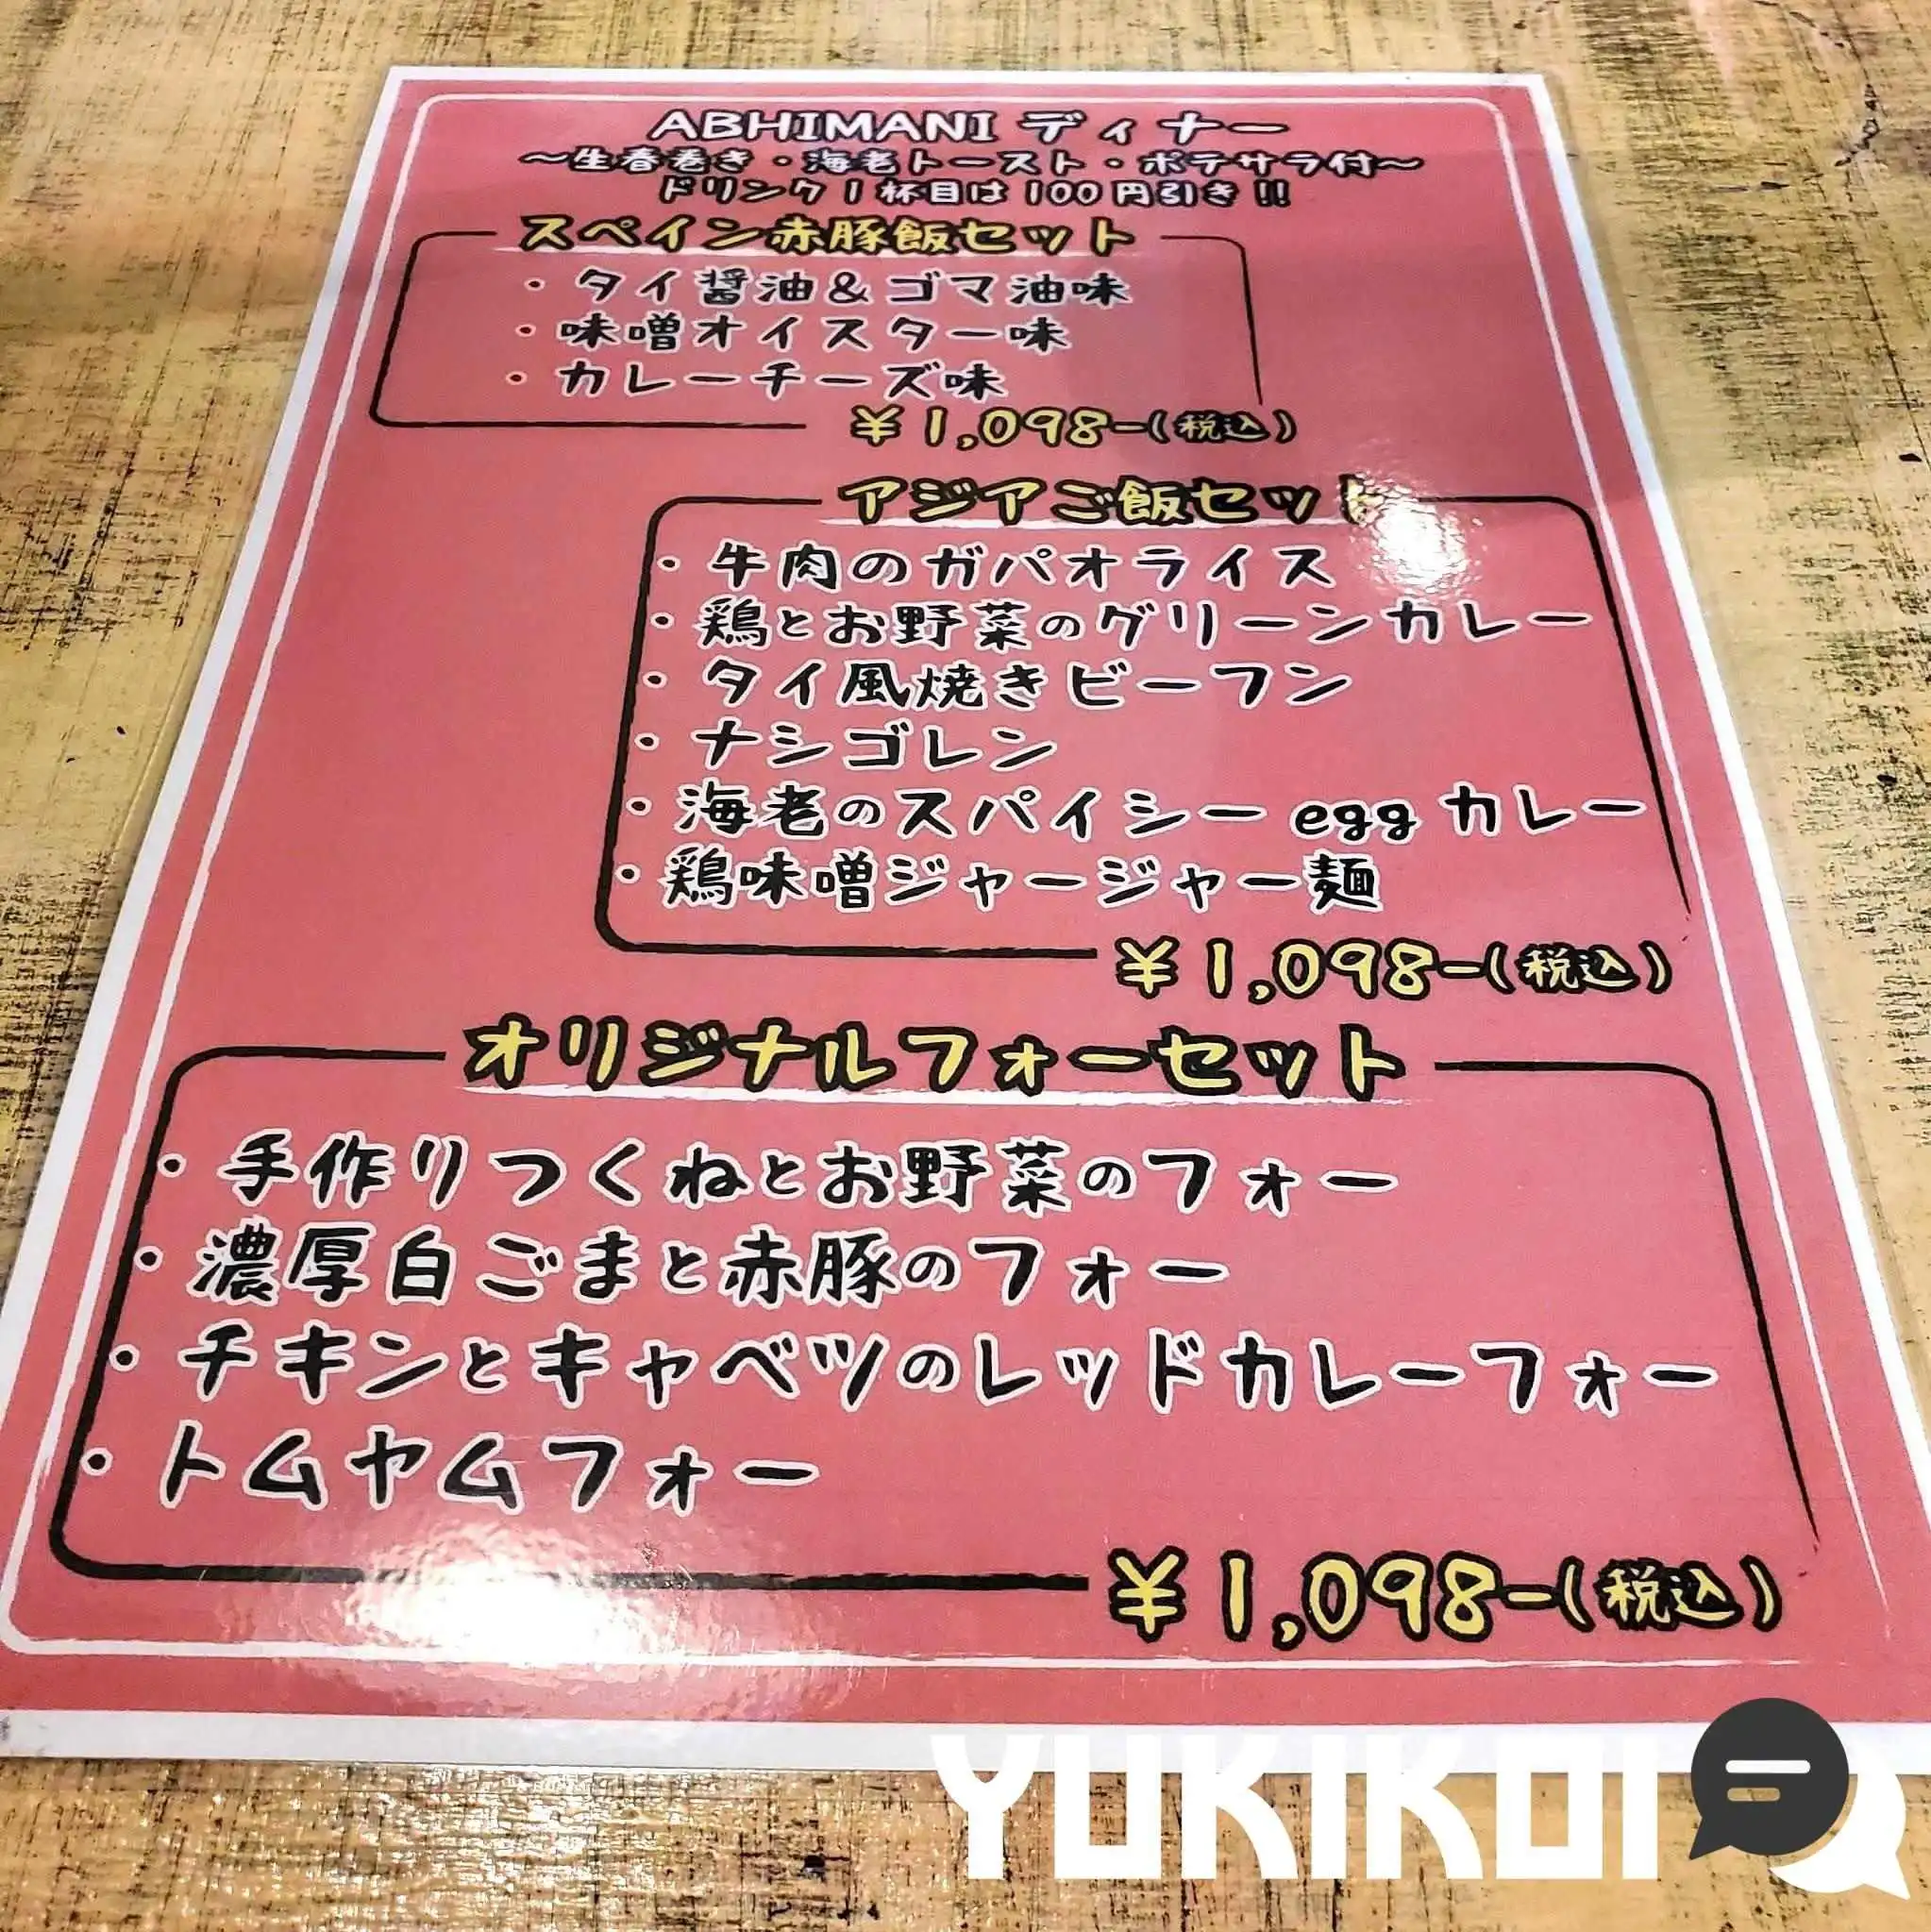 ABHIMANI ディナー
～生春巻き・海老トースト・ポテサラ付～
ドリンク1杯目は100円引き!!
スペイン赤豚飯セット
・タイ醤油&ゴマ油味
・味噌オイスター味
・カレーチーズ味
¥1,098-(税込)
アジアご飯セット
・牛肉のガパオライス
・鶏とお野菜のグリーンカレー
・タイ風焼きビーフン
・ナシゴレン
・海老のスパイシーeggカレー
・鶏味噌ジャージャー麺
¥1,098-(税込)
オリジナルフォーセット
・手作りつくねとお野菜のフォー
・濃厚白ごまと赤豚のフォー
・チキンとキャベツのレッドカレーフォー
・トムヤムフォー
¥1,098-(税込)
YUKIKOI